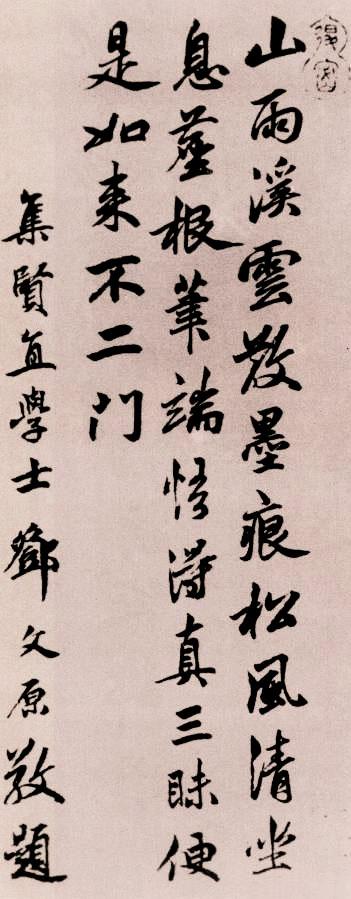 山雨溪雲散墨痕松風清坐
息塵根筆端悟得真三昧便
是如來不二門
集賢直學士鄧文原敬題